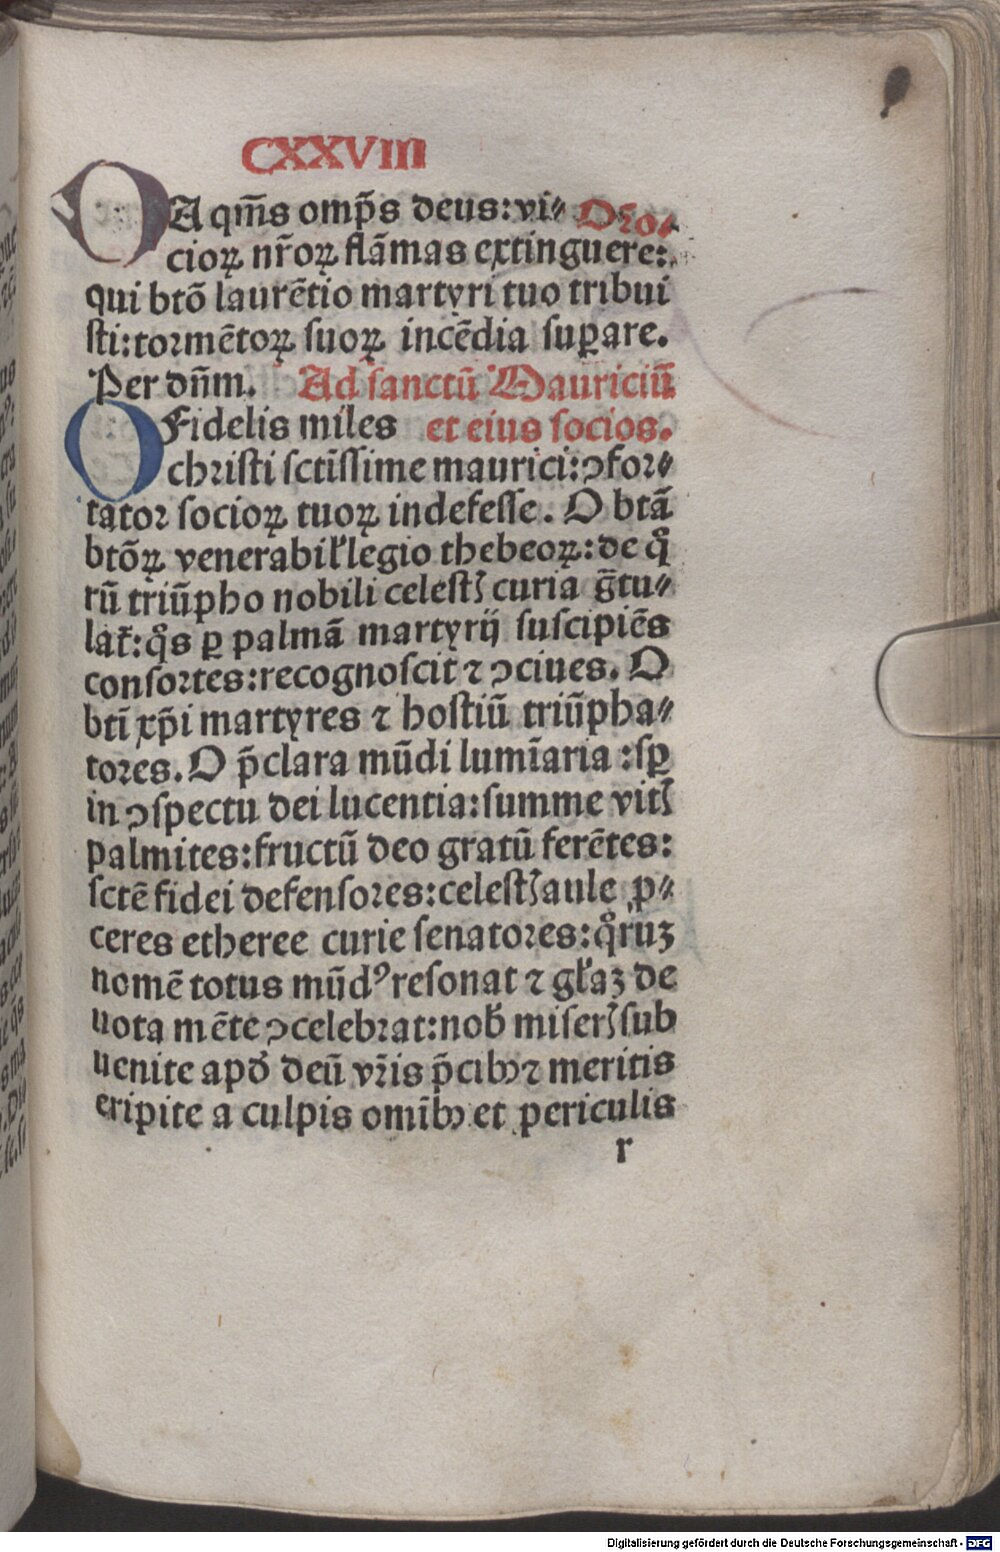 CXXVIII
DA qm̄s omp̄s deus: vi⸗ Oro.
cioꝝ nr̄oꝝ flām̄as extinguere:
qui btō laurētio martyri tuo tribui
sti: tormētoꝝ suoꝝ incēdia suꝑare.
Per dn̄m. Ad sanctū Mauriciū
O Fidelis miles et eius socios.
christi sctīssime maurici: ꝯfor⸗
tator socioꝝ tuoꝝ indefesse. O btā
btōꝝ venerabil̛ legio thebeoꝝ: de qͦ
rū triūpho nobili celestꝭ curia gr̄tu⸗
lat̛: qͦs ꝑ palmā martyrij suscipiēs
consortes: recognoscit ⁊ ꝯciues. O
btī xp̄i martyres ⁊ hostiū triūpha⸗
tores. O p̄clara mūdi lumīaria: sꝑ
in ꝯspectu dei lucentia: summe vitꝭ
palmites: fructū deo gratū ferētes:
sctē fidei defensores: celestꝭ aule ꝓ⸗
ceres etheree curie senatores: qͦruꝫ
nomē totus mūdꝰ resonat ⁊ gl̛aꝫ de
uota mēte ꝯcelebrat: nob̛ miserꝭ sub
uenite apd̛ deū vr̄is p̄cibꝰ ⁊ meritis
eripite a culpis omībꝰ et periculis
r
Digitalisierung gefördert durch die Deutsche Forschungsgemeinschaft - DFG